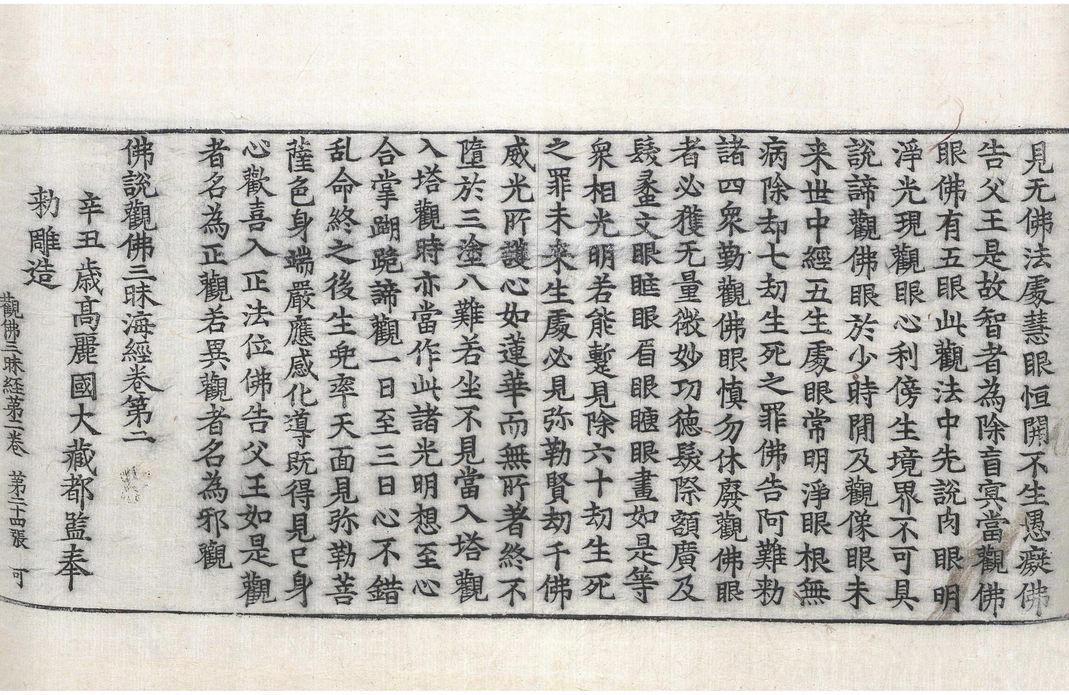 見无佛法處慧眼恒開不生愚癡佛
告父王是故智者為除盲冥當觀佛
眼佛有五眼此觀法中先說肉眼明
淨光現觀眼心利傍生境界不可具
說諦觀佛眼於少時間及觀像眼未
来世中經五生處眼常明淨眼根無
病除却七劫生死之罪佛告阿難勑
諸四衆勤觀佛眼慎勿休廢觀佛眼
者必獲无量微妙功德髮際額廣及
髮螺文眼眶眼眉眼睫眼畫如是等
衆相光明若能蹔見除六十劫生死
之罪未来生處必見弥勒賢劫千佛
威光所護心如蓮華而無所著終不
墮於三塗八難若坐不見當入塔觀
入塔觀時亦當作此諸光明想至心
合掌䠒跪諦觀一日至三日心不錯
乱命終之後生兜率天面見弥勒菩
薩色身端嚴應感化導既得見已身
心歡喜入正法位佛告父王如是觀
者名為正觀若異觀者名為邪觀
佛說觀佛三昧海經卷第二
辛丑歳髙麗國大藏都監奉
勑雕造
觀佛三昧経苐二卷 苐二十四張 可